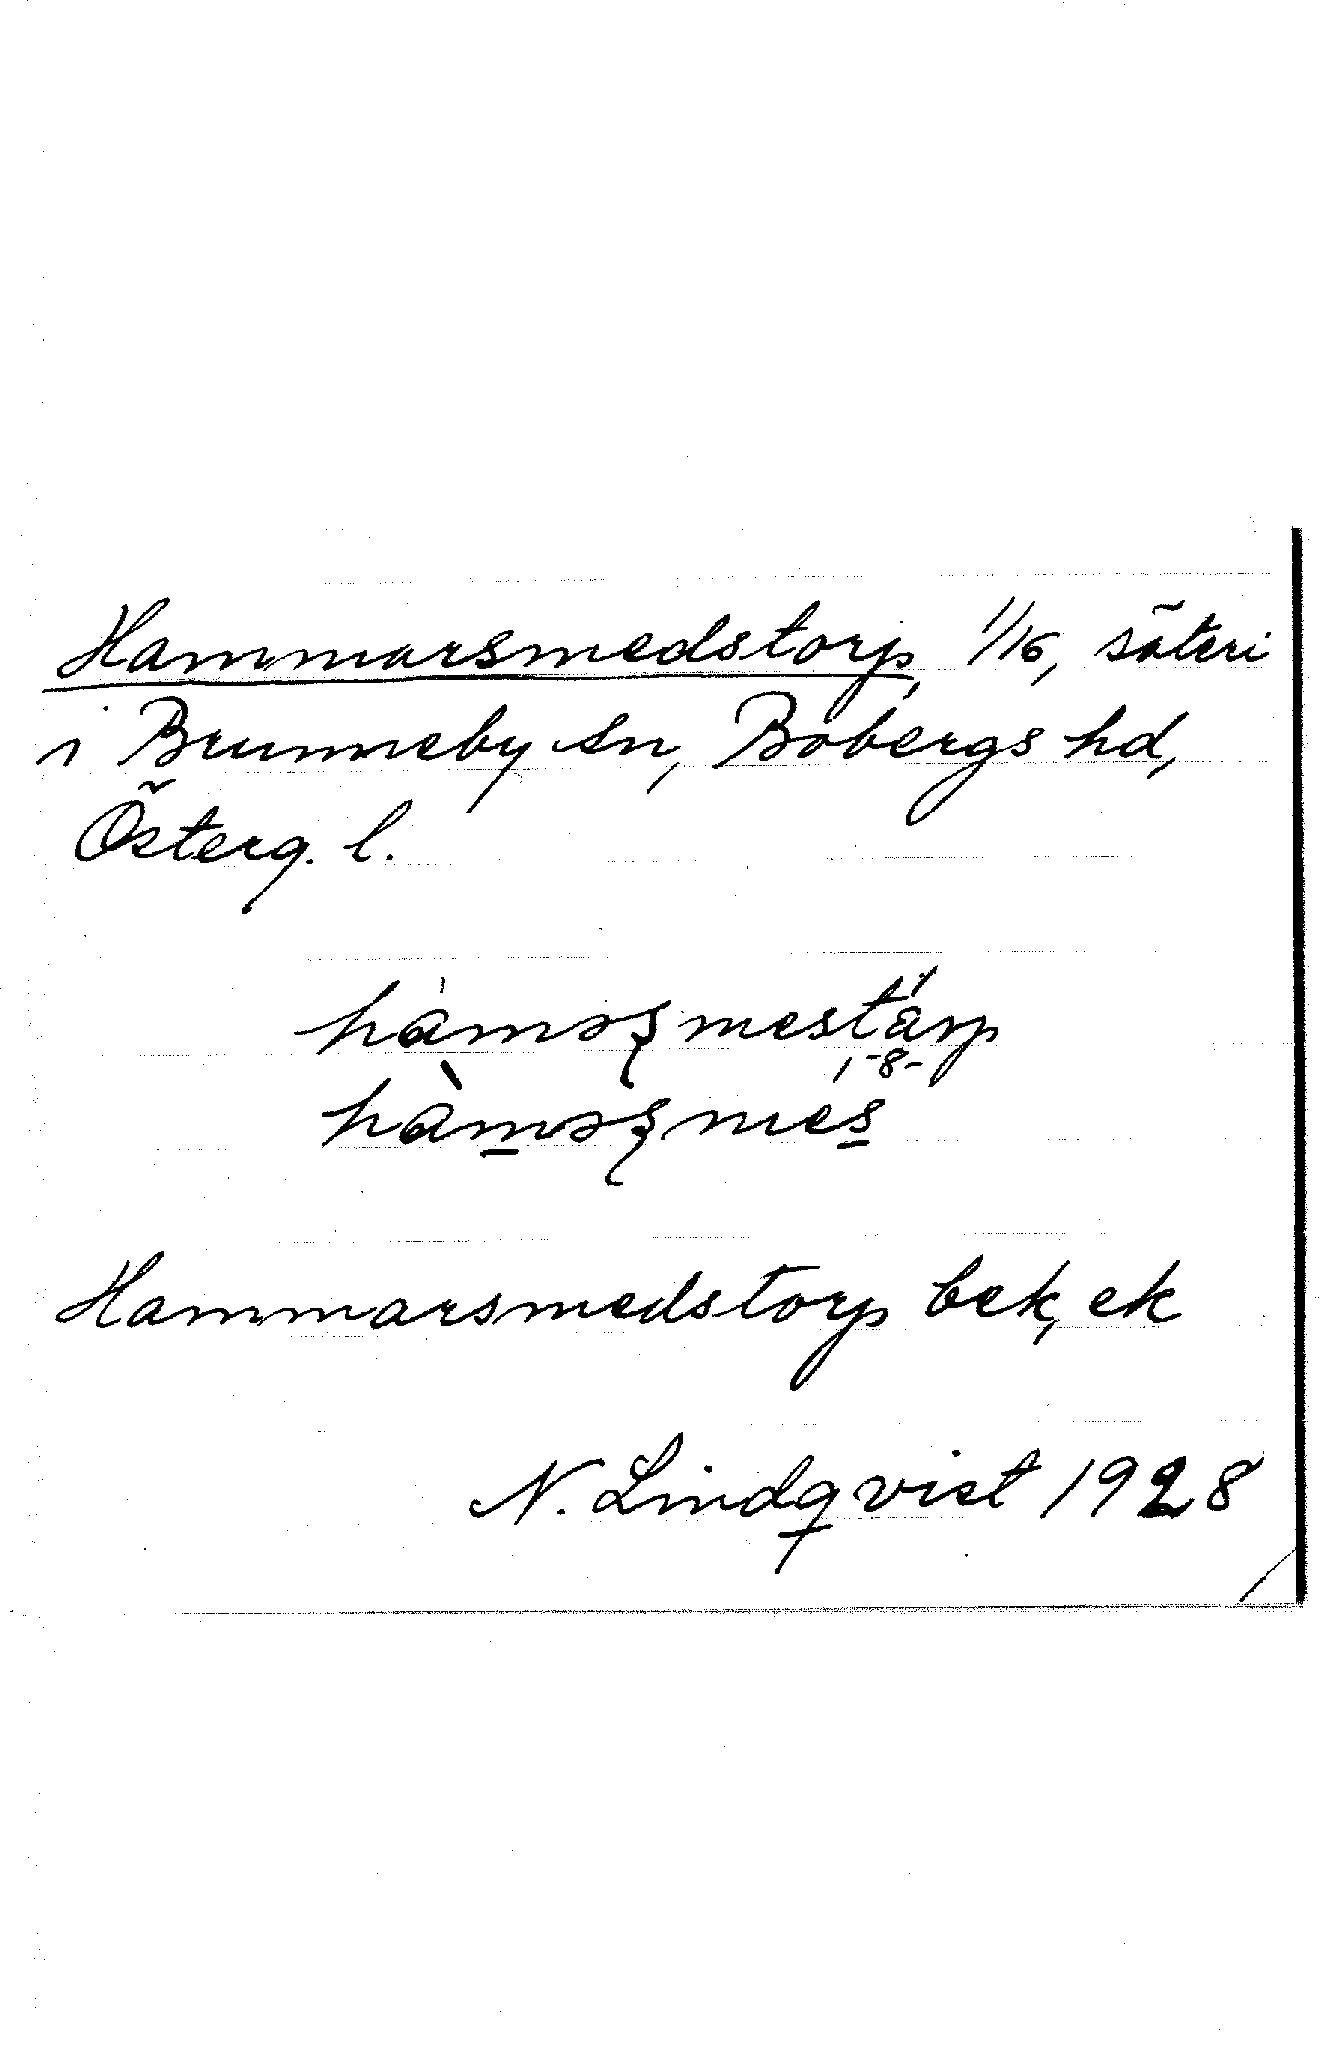 Hammarsmedstorp, 1/16, säteri
i Brunneby sn, Bobergs hd,
Österg. l.
hàməʂmestårp
-8-
hàməʂmes
Hammarsmedstorp bek, ek
N. Lindqvist 1928